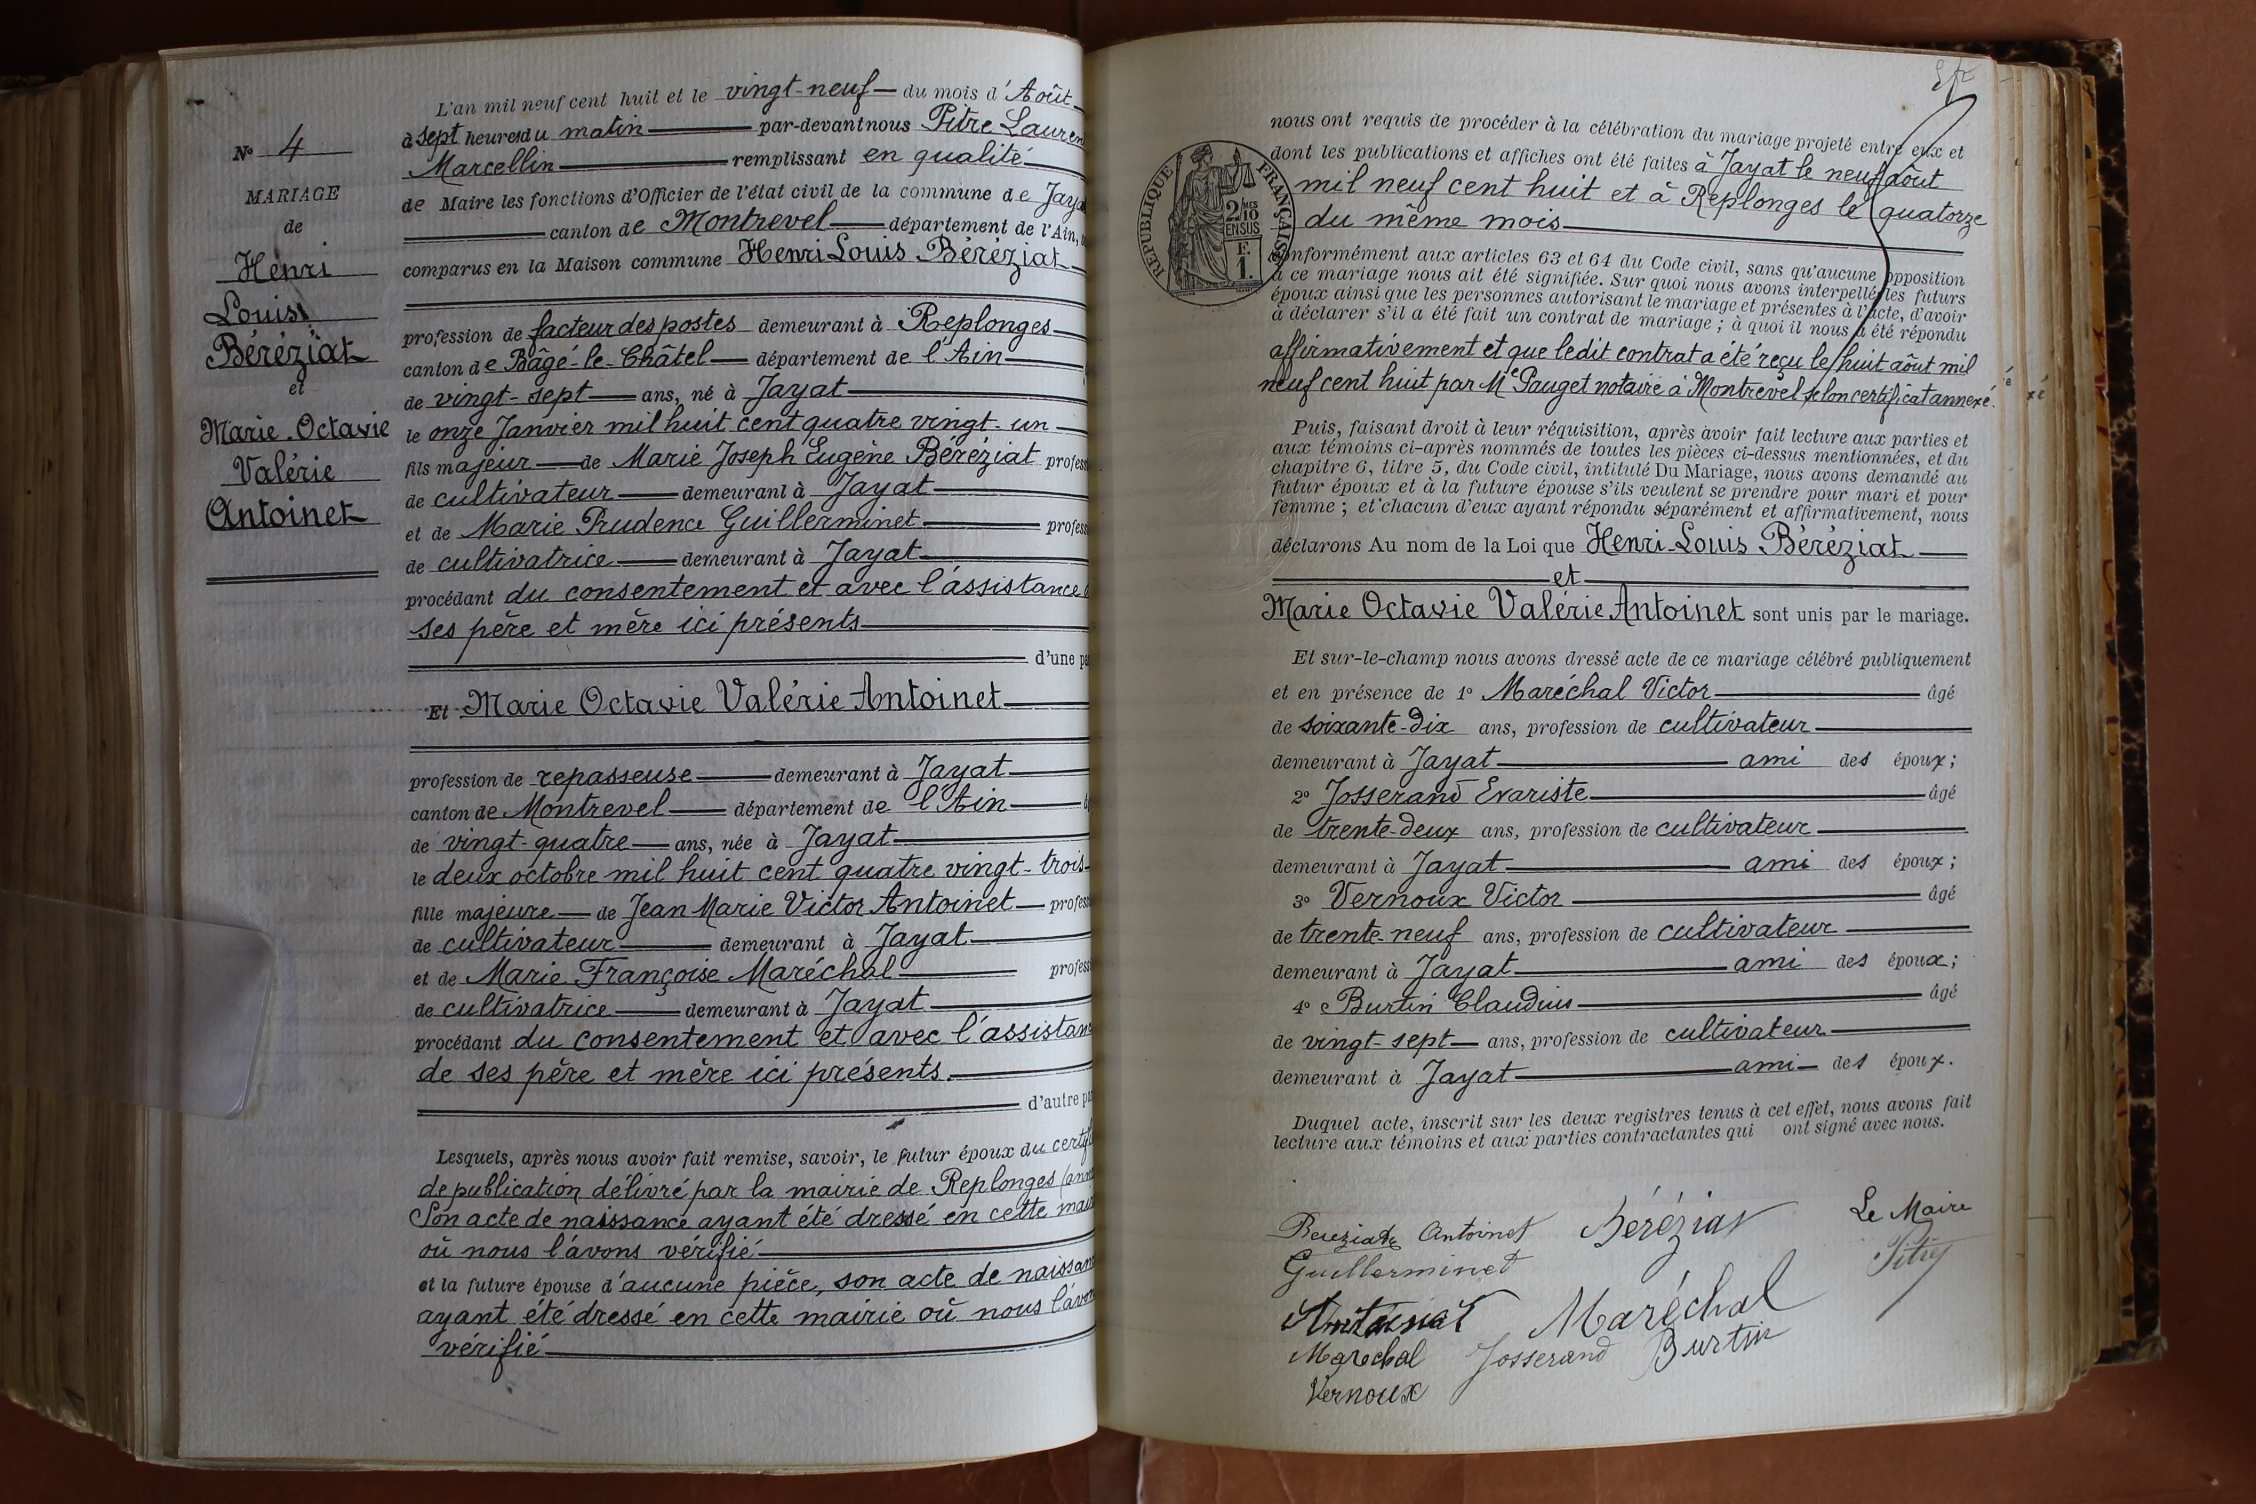 L'an mil neuf cent huit et le vingt-neuf du mois d'Août
à sept heures du matin par-devant nous Pitre Lauren
Marcellin remplissant en qualité
de Maire les fonctions d'Officier de l'état civil de la commune de Jaya
canton de Montrevel département de l'Ain,
comparus en la Maison commune Henri Louis Béréziat
profession de facteur des postes demeurant à Replonges
canton de Bâgé-le-Châtel département de l'Ain
de vingt-sept ans, né à Jayat
le onze Janvier mil huit cent quatre vingt-un
fils majeur de Marie Joseph Eugène Béréziat profess
de cultivateur demeurant à Jayat
et de Marie Prudence Guillerminet profess
de cultivatrice demeurant à Jayat
procédant du consentement et avec l'assistance
ses père et mère ici présents
d'une pa
Et Marie Octavie Valérie Antoinet
profession de repasseuse demeurant à Jayat
canton de Montrevel département de l'Ain
de vingt-quatre ans, née à Jayat
le deux octobre mil huit cent quatre vingt-trois
fille majeure de Jean Marie Victor Antoinet profess
de cultivateur demeurant à Jayat
et de Marie Françoise Maréchal profess
de cultivatrice demeurant à Jayat
procédant du consentement et avec l'assistan
de ses père et mère ici présents.
d'autre pa
Lesquels, après nous avoir fait remise, savoir, le futur époux du certif
de publication délivré par la mairie de Replonges (ann
Son acte de naissance ayant été dressé en cette mai
où nous l'avons vérifié
et la future épouse d'aucune pièce, son acte de naissan
ayant été dressé en cette mairie où nous l'avon
vérifié
N° 4
MARIAGE
de
Henri
Louis
Béréziat
et
Marie Octavie
Valérie
Antoinet
nous ont requis de procéder à la célébration du mariage projeté entre eux et
dont les publications et affiches ont été faites à Jayat le neuf août
mil neuf cent huit et à Replonges le quatorze
du même mois
conformément aux articles 63 et 64 du Code civil, sans qu'aucune opposition
à ce mariage nous ait été signifiée. Sur quoi nous avons interpellé les futurs
époux ainsi que les personnes autorisant le mariage et présentes à l'acte, d'avoir
à déclarer s'il a été fait un contrat de mariage ; à quoi il nous a été répondu
affirmativement et que ledit contrat a été reçu le huit août mil
neuf cent huit par Me Pauget notaire à Montrevel selon certificat annexé.
Puis, faisant droit à leur réquisition, après avoir fait lecture aux parties et
aux témoins ci-après nommés de toutes les pièces ci-dessus mentionnées, et du
chapitre 6, titre 5, du Code civil, intitulé Du Mariage, nous avons demandé au
futur époux et à la future épouse s'ils veulent se prendre pour mari et pour
femme ; et chacun d'eux ayant répondu séparément et affirmativement, nous
déclarons Au nom de la Loi que Henri-Louis Béréziat
et
Marie Octavie Valérie Antoinet sont unis par le mariage.
Et sur-le-champ nous avons dressé acte de ce mariage célébré publiquement
et en présence de 1° Maréchal Victor âgé
de soixante-dix ans, profession de cultivateur
demeurant à Jayat ami des époux;
2° Josserand Evariste âgé
de trente-deux ans, profession de cultivateur
demeurant à Jayat ami des époux;
3° Vernoux Victor âgé
de trente-neuf ans, profession de cultivateur
demeurant à Jayat ami des époux;
4° Burtin Claudius âgé
de vingt-sept ans, profession de cultivateur
demeurant à Jayat ami des époux.
Duquel acte, inscrit sur les deux registres tenus à cet effet, nous avons fait
lecture aux témoins et aux parties contractantes qui ont signé avec nous.
Antoinet Béréziat Le Maire
Guillerminet Pitre
Antoinet Maréchal
Maréchal Josserand Burtin
Vernoux
RÉPUBLIQUE FRANÇAISE
2/10MES
EN SUS
F.
1.